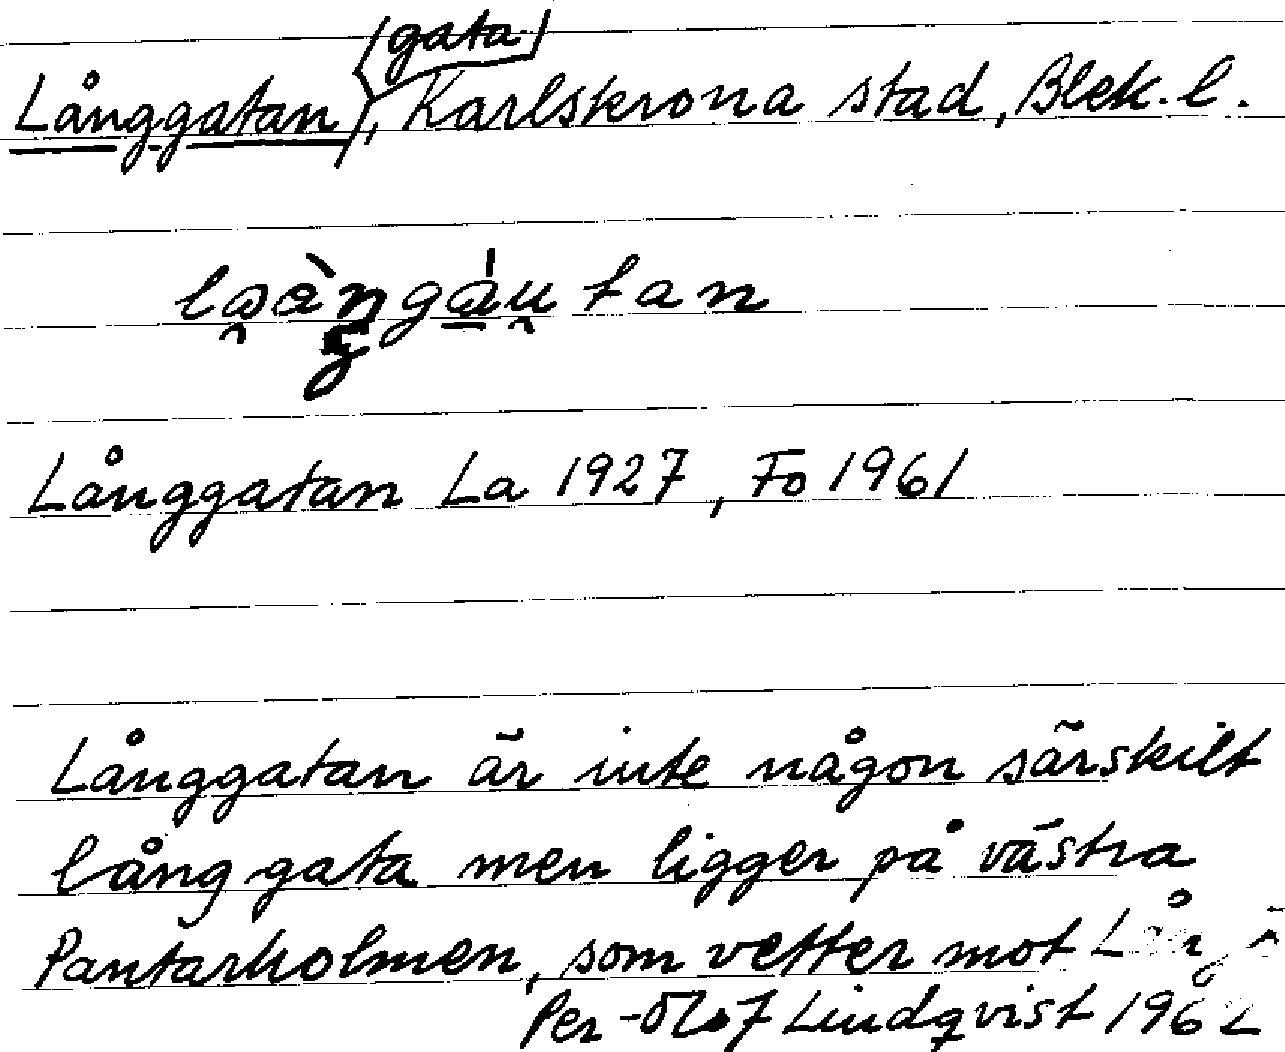 (gata)
Långgatan, Karlskrona stad, Blek. l.
Långgatan La 1927, Fo 1961
Långgatan är inte någon särskilt
lång gata men ligger på västra
Pantarholmen, som vetter mot
Per-Olof Lindqvist 1962